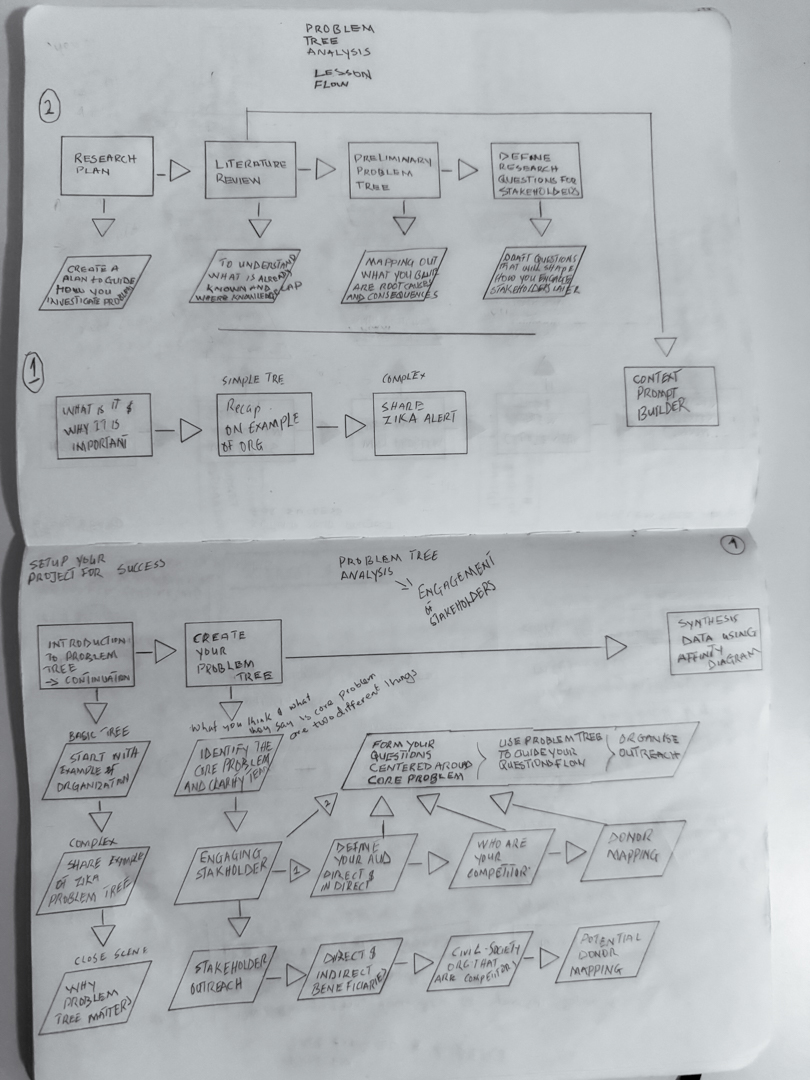 PROBLEM
TREE
ANALYSIS
LESSON
FLOW
2
RESEARCH
PLAN
LITERATURE
REVIEW
PRELIMINARY
PROBLEM
TREE
DEFINE
RESEARCH
QUESTIONS FOR
STAKEHOLDERS
CREATE A
PLAN TO GUIDE
HOW YOU
INVESTIGATE PROBLEM
TO UNDERSTAND
WHAT IS ALREADY
KNOWN AND
WHERE KNOWLEDGE GAP
MAPPING OUT
WHAT YOU
ARE ROOT CAUSES
AND CONSEQUENCES
DRAFT QUESTIONS
THAT WILL SHAPE
HOW YOU ENGAGE
STAKEHOLDERS LATER
1
WHAT IS IT &
WHY IT IS
IMPORTANT
SIMPLE TRE
Recap
ON EXAMPLE
OF ORG
COMPLEX
SHARE
ZIKA ALERT
CONTEXT
PROMPT
BUILDER
SETUP YOUR
PROJECT FOR SUCCESS
PROBLEM TREE
ANALYSIS
ENGAGEMENT
OF
STAKEHOLDERS
1
INTRODUCTION
TO PROBLEM
TREE
→ CONTINUATION
CREATE
YOUR
PROBLEM
TREE
SYNTHESIS
DATA USING
AFFINITY
DIAGRAM
BASIC TREE
START WITH
EXAMPLE OF
ORGANIZATION
What you think & what
they say is core problem
are two different things
IDENTIFY THE
CORE PROBLEM
AND CLARITY
FORM YOUR
QUESTIONS
CENTERED AROUND
CORE PROBLEM
USE PROBLEM TREE
TO GUIDE YOUR
QUESTION FLOW
ORGANISE
OUTREACH
COMPLEX
SHARE EXAMPLE
OF ZIKA
PROBLEM TREE
ENGAGING
STAKHOLDER
2
1
DEFINE
YOUR AUD
DIRECT &
INDIRECT
WHO ARE
YOUR
COMPETITOR
DONOR
MAPPING
CLOSE SCENE
WHY
PROBLEM
TREE MATTER?
STAKEHOLDER
OUTREACH
DIRECT &
INDIRECT
BENEFICIARIES
CIVIL-SOCIETY
ORG THAT
ARE COMPETITOR
POTENTIAL
DONOR
MAPPING